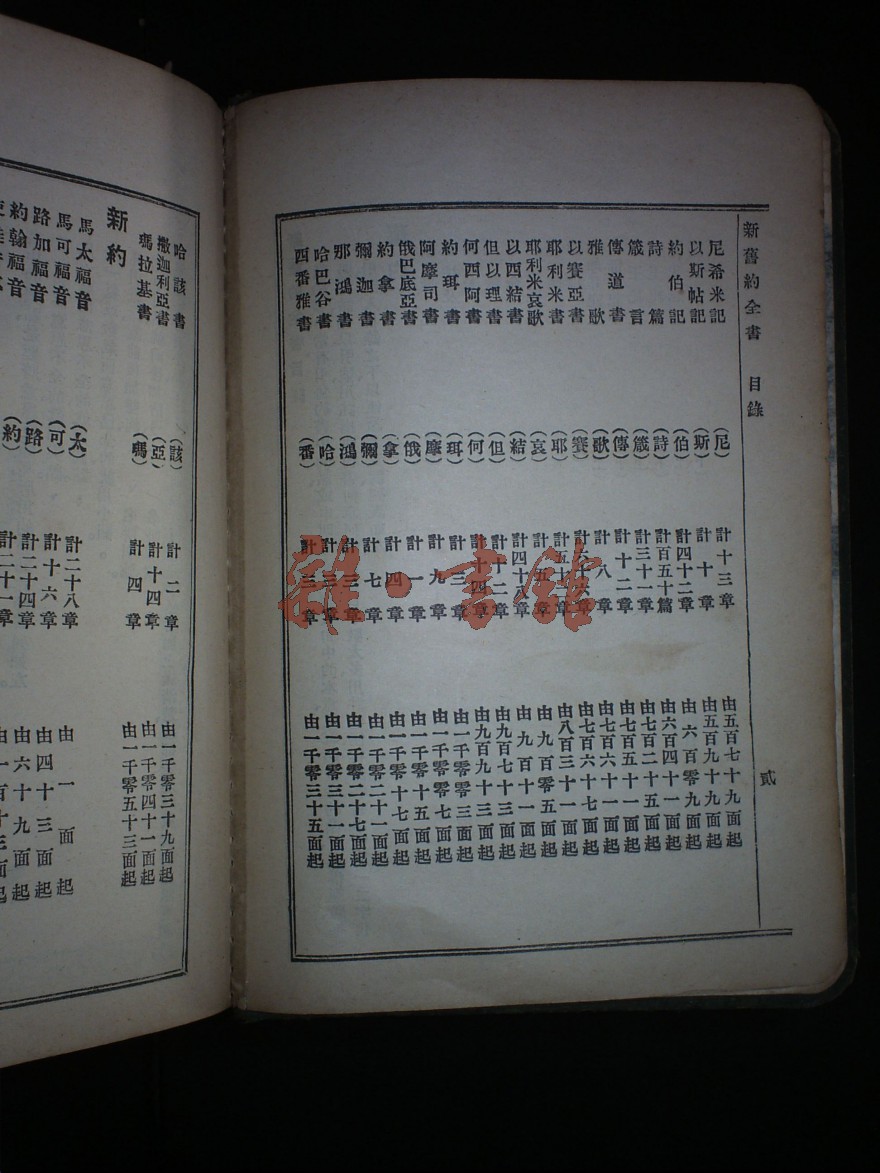 新舊約全書 目錄 貳
尼希米記 (尼) 計十三章 由五百七十九面起
以斯帖記 (斯) 計十章 由五百九十九面起
約伯記 (伯) 計四十二章 由六百零九面起
詩篇 (詩) 計百五十篇 由六百四十一面起
箴言 (箴) 計三十一章 由七百二十五面起
傳道書 (傳) 計十二章 由七百五十一面起
雅歌 (歌) 計八章 由七百六十一面起
以賽亞書 (賽) 計六十六章 由七百六十七面起
耶利米書 (耶) 計五十二章 由八百三十一面起
耶利米哀歌 (哀) 計五章 由九百零五面起
以西結書 (結) 計四十八章 由九百十一面起
但以理書 (但) 計十二章 由九百七十三面起
何西阿書 (何) 計十四章 由九百九十三面起
約珥書 (珥) 計三章 由一千零零三面起
阿摩司書 (摩) 計九章 由一千零零七面起
俄巴底亞書 (俄) 計一章
約拿書 (拿) 計四章 由一千零十七面起
彌迦書 (彌) 計七章 由一千零二十一面起
那鴻書 (鴻) 計三章 由一千零二十七面起
哈巴谷書 (哈) 計三章 由一千零三十一面起
西番雅書 (番) 計三章 由一千零三十五面起
哈該書 (該) 計二章 由一千零三十九面起
撒迦利亞書 (亞) 計十四章 由一千零四十一面起
瑪拉基書 (瑪) 計四章 由一千零五十三面起
新約
馬太福音 (太) 計二十八章 由一面起
馬可福音 (可) 計十六章 由四十三面起
路加福音 (路) 計二十四章 由六十九面起
約翰福音 (約) 計二十一章 由一百十三面起
雜·書館